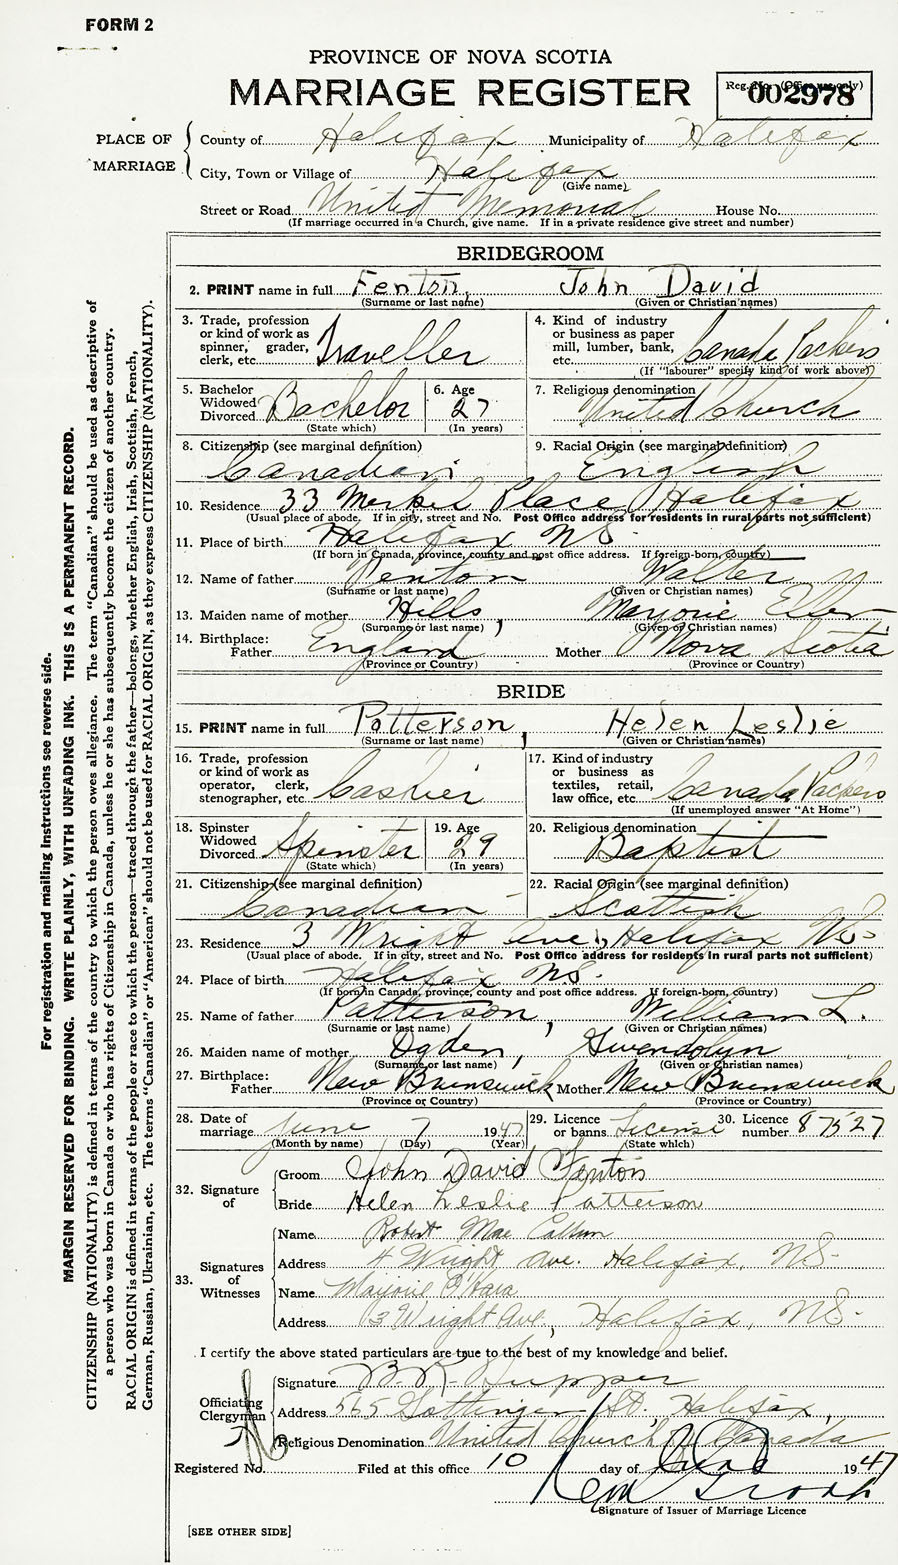 FORM 2
PROVINCE OF NOVA SCOTIA
MARRIAGE REGISTER
Reg. No. (Office use only)
002978
PLACE OF MARRIAGE
County of Halifax Municipality of Halifax
City, Town or Village of Halifax
(Give name)
Street or Road United Memorial House No.
(If marriage occurred in a Church, give name. If in a private residence give street and number)
BRIDEGROOM
2. PRINT name in full Fenton, John David
(Surname or last name) (Given or Christian names)
3. Trade, profession or kind of work as spinner, grader, clerk, etc. Traveller
4. Kind of industry or business as paper mill, lumber, bank, etc. Canada Packers
(If "labourer" specify kind of work above)
5. Bachelor Widowed Divorced Bachelor
(State which)
6. Age 27
(In years)
7. Religious denomination
United Church
8. Citizenship (see marginal definition)
Canadian
9. Racial Origin (see marginal definition)
English
10. Residence 33 Merkel Place, Halifax
(Usual place of abode. If in city, street and No. Post Office address for residents in rural parts not sufficient)
11. Place of birth Halifax NS.
(If born in Canada, province, county and post office address. If foreign-born, country)
12. Name of father Fenton Walter
(Surname or last name) (Given or Christian names)
13. Maiden name of mother Hills, Marjorie Ellen
(Surname or last name) (Given or Christian names)
14. Birthplace: Father England Mother Nova Scotia
(Province or Country) (Province or Country)
BRIDE
15. PRINT name in full Patterson, Helen Leslie
(Surname or last name) (Given or Christian names)
16. Trade, profession or kind of work as operator, clerk, stenographer, etc. Cashier
17. Kind of industry or business as textiles, retail, law office, etc. Canada Packers
(If unemployed answer "At Home")
18. Spinster Widowed Divorced Spinster
(State which)
19. Age 29
(In years)
20. Religious denomination
Baptist
21. Citizenship (see marginal definition)
Canadian
22. Racial Origin (see marginal definition)
Scottish
23. Residence 3 Wright Ave., Halifax NS
(Usual place of abode. If in city, street and No. Post Office address for residents in rural parts not sufficient)
24. Place of birth Halifax NS.
(If born in Canada, province, county and post office address. If foreign-born, country)
25. Name of father Patterson, William L.
(Surname or last name) (Given or Christian names)
26. Maiden name of mother Ogden, Gwendolyn
(Surname or last name) (Given or Christian names)
27. Birthplace: Father New Brunswick Mother New Brunswick
(Province or Country) (Province or Country)
28. Date of marriage June 7 1947
(Month by name) (Day) (Year)
29. Licence or banns License
(State which)
30. Licence number 87527
32. Signature of
Groom John David Fenton
Bride Helen Leslie Patterson
33. Signatures of Witnesses
Name Robert MacCallum
Address 4 Wright Ave. Halifax, NS.
Name Marjorie O'Hara
Address 13 Wright Ave., Halifax, NS.
I certify the above stated particulars are true to the best of my knowledge and belief.
Officiating Clergyman
Signature Tupper
Address 565 Gottingen St. Halifax,
Religious Denomination United Church of Canada
Registered No. Filed at this office 10 day of June 1947
Signature of Issuer of Marriage Licence
[SEE OTHER SIDE]
For registration and mailing instructions see reverse side.
MARGIN RESERVED FOR BINDING. WRITE PLAINLY, WITH UNFADING INK. THIS IS A PERMANENT RECORD.
CITIZENSHIP (NATIONALITY) is defined in terms of the country to which the person owes allegiance. The term "Canadian" should be used as descriptive of
a person who was born in Canada or who has rights of Citizenship in Canada, unless he or she has subsequently become the citizen of another country.
RACIAL ORIGIN is defined in terms of the people or race to which the person—traced through the father—belongs, whether English, Irish, Scottish, French,
German, Russian, Ukrainian, etc. The terms "Canadian" or "American" should not be used for RACIAL ORIGIN, as they express CITIZENSHIP (NATIONALITY).